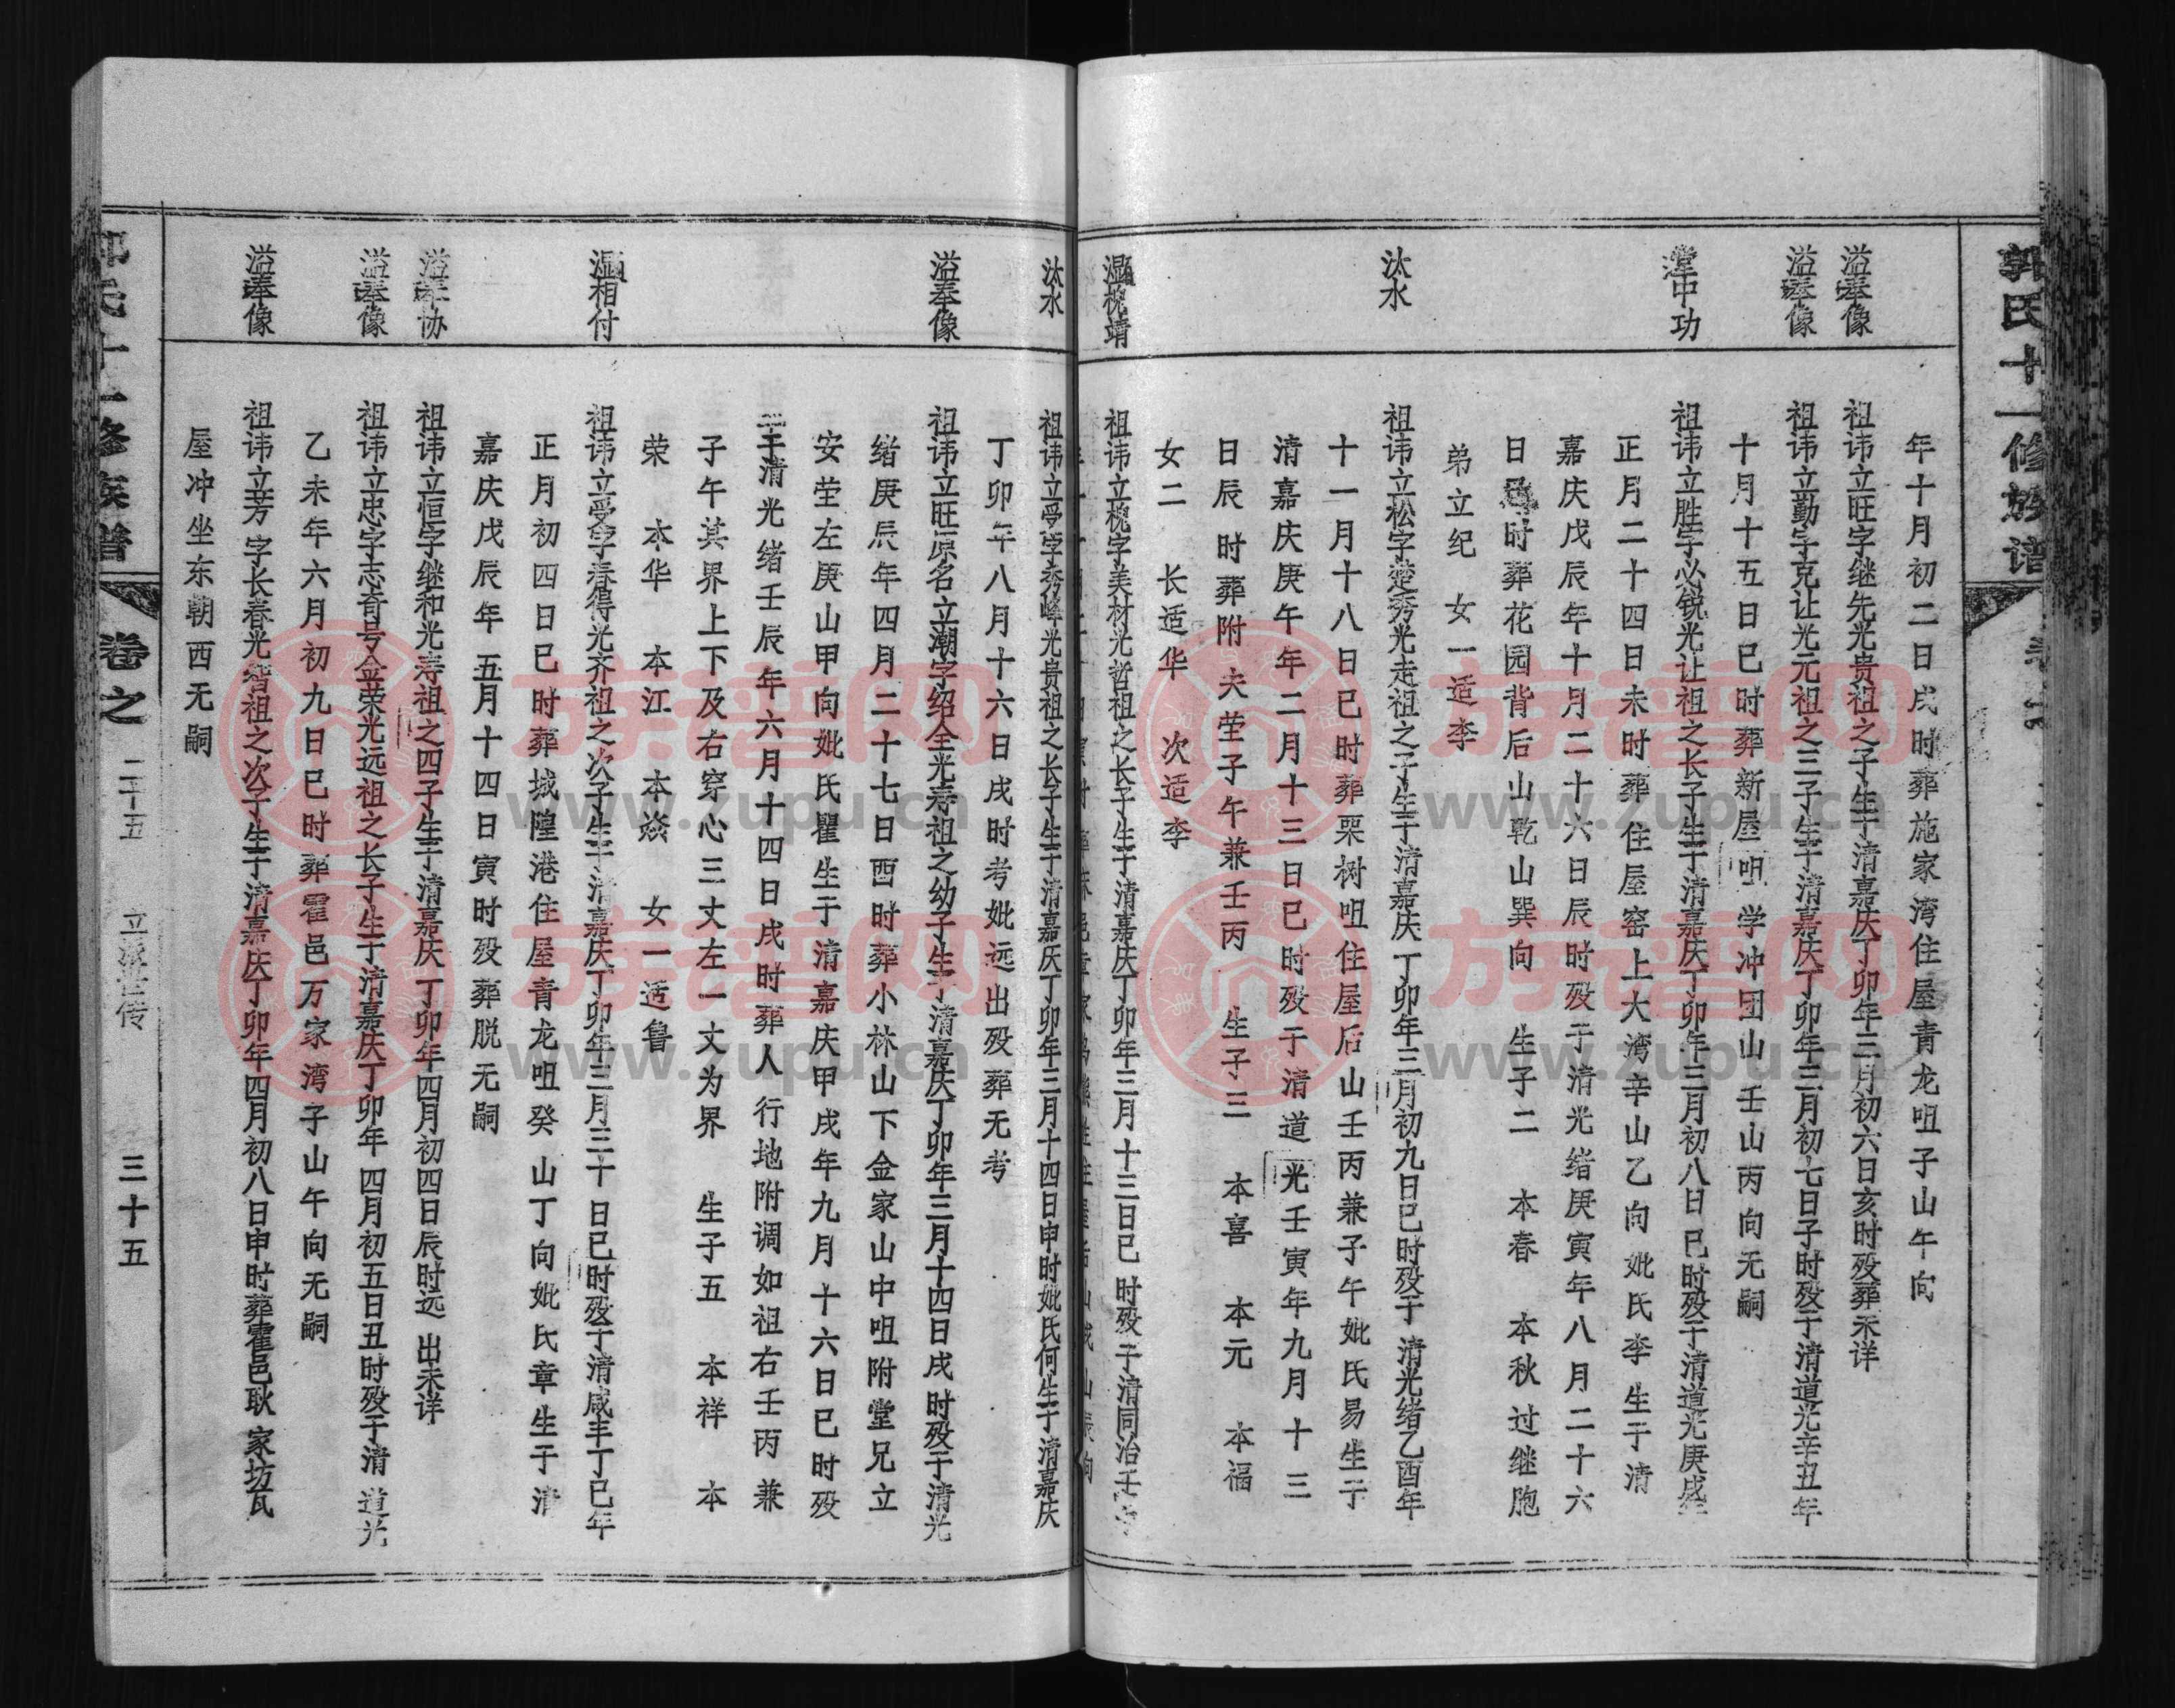 郭氏十一修族谱
溢奉像
溢奉像
堂中功
汰水
湿槐靖
年十月初二日戌时葬施家湾住屋青龙咀子山午向
祖讳立旺字继先光贵祖之子生于清嘉庆丁卯年三月初六日亥时殁葬未详
祖讳立勤字克让光元祖之三子生于清嘉庆丁卯年三月初七日子时殁于清道光辛丑年
十月十五日巳时葬新屋咀学冲团山壬山丙向无嗣
祖讳立胜字必锐光让祖之长子生于清嘉庆丁卯年三月初八日巳时殁于清道光庚戌年
正月二十四日未时葬住屋窑上大湾辛山乙向妣氏李生于清
嘉庆戊辰年十月二十六日辰时殁于清光绪庚寅年八月二十六
日 时葬花园背后山乾山巽向 生子二 本春 本秋过继胞
弟立纪 女一适李
祖讳立松字楚秀光走祖之子生于清嘉庆丁卯年三月初九日巳时殁于清光绪乙酉年
十一月十八日巳时葬栗树咀住屋后山壬丙兼子午妣氏易生于
清嘉庆庚午年二月十三日巳时殁于清道光壬寅年九月十三
日辰时葬附夫茔子午兼壬丙 生子三 本喜 本元 本福
女二 长适华 次适李
祖讳立槐字美材光哲祖之长子生于清嘉庆丁卯年三月十三日巳时殁于清同治壬
汰水
溢奉像
湿相付
溢奉协
溢奉像
溢奉像
祖讳立受字秀峰光贵祖之长子生于清嘉庆丁卯年三月十四日申时妣氏何生于清嘉庆
丁卯年八月十六日戌时考妣远出殁葬无考
祖讳立旺原名立潮字绍全光寿祖之幼子生于清嘉庆丁卯年三月十四日戌时殁于清光
绪庚辰年四月二十七日酉时葬小林山下金家山中咀附堂兄立
安茔左庚山甲向妣氏瞿生于清嘉庆甲戌年九月十六日巳时殁
于清光绪壬辰年六月十四日戌时葬人行地附调如祖右壬丙兼
子午其界上下及右穿心三丈左一丈为界 生子五 本祥 本
荣 本华 本江 本焱 女一适鲁
祖讳立受字春得光齐祖之次子生于清嘉庆丁卯年三月三十日巳时殁于清咸丰丁巳年
正月初四日巳时葬城隍港住屋青龙咀癸山丁向妣氏章生于清
嘉庆戊辰年五月十四日寅时殁葬脱无嗣
祖讳立恒字继和光寿祖之四子生于清嘉庆丁卯年四月初四日辰时远出未详
祖讳立忠字志奇号金荣光远祖之长子生于清嘉庆丁卯年四月初五日丑时殁于清道光
乙未年六月初九日巳时葬霍邑万家湾子山午向无嗣
祖讳立芳字长春光楷祖之次子生于清嘉庆丁卯年四月初八日申时葬霍邑耿家坊瓦
屋冲坐东朝西无嗣
卷之二十五
三十五
族谱网
www.zupu.cn
族谱网
www.zupu.cn
族谱网
www.zupu.cn
族谱网
www.zupu.cn